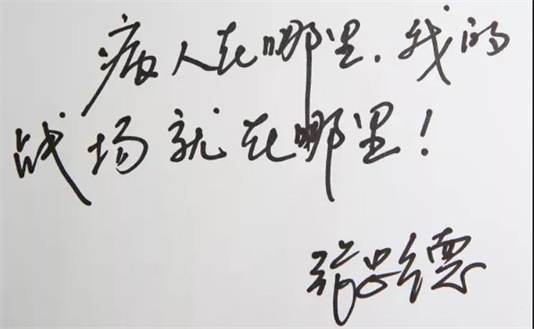 病人在哪里，我的
战场就在哪里！
张忠德